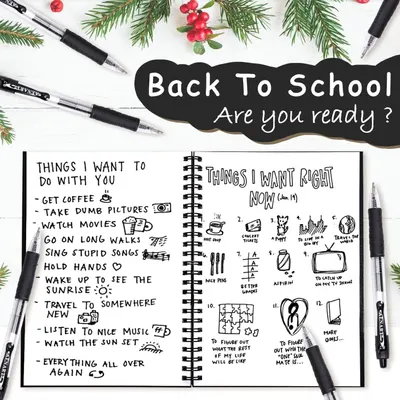 Back To School
Are you ready ?
THINGS I WANT TO
DO WITH YOU
- GET COFFEE
- TAKE DUMB PICTURES
- WATCH MOVIES
- GO ON LONG WALKS
- SING STUPID SONGS
- HOLD HANDS
- WAKE UP TO SEE THE
SUNRISE
- TRAVEL TO SOMEWHERE
NEW
- LISTEN TO NICE MUSIC
- WATCH THE SUN SET
- EVERYTHING ALL OVER
AGAIN
THINGS I WANT RIGHT
NOW (Jan 19)
1.
HOT SOUP
2.
CONCERT
TICKETS
3.
PUPPY
4.
TO LIVE IN A
5.
TRAVEL THE
WORLD
6.
NICE PENS
7.
BETTER
GRADES
8.
ASPIRIN
9.
TO CATCH UP
ON MY TV SHOWS
10.
TO FIGURE OUT
WHAT THE REST
OF MY LIFE
WILL BE LIKE
11.
TO FIGURE
OUT WITH THE
"ONE" SUR
MATE IS...
12.
MORE